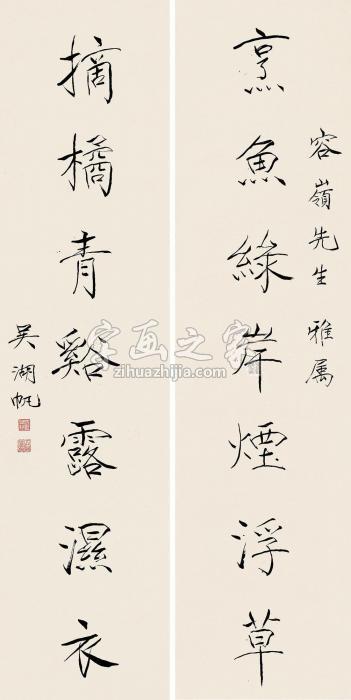 容嶺先生 雅属
烹魚綠岸煙浮草
摘橘青谿露濕衣
吳湖帆
字画之家
zihuazhijia.com